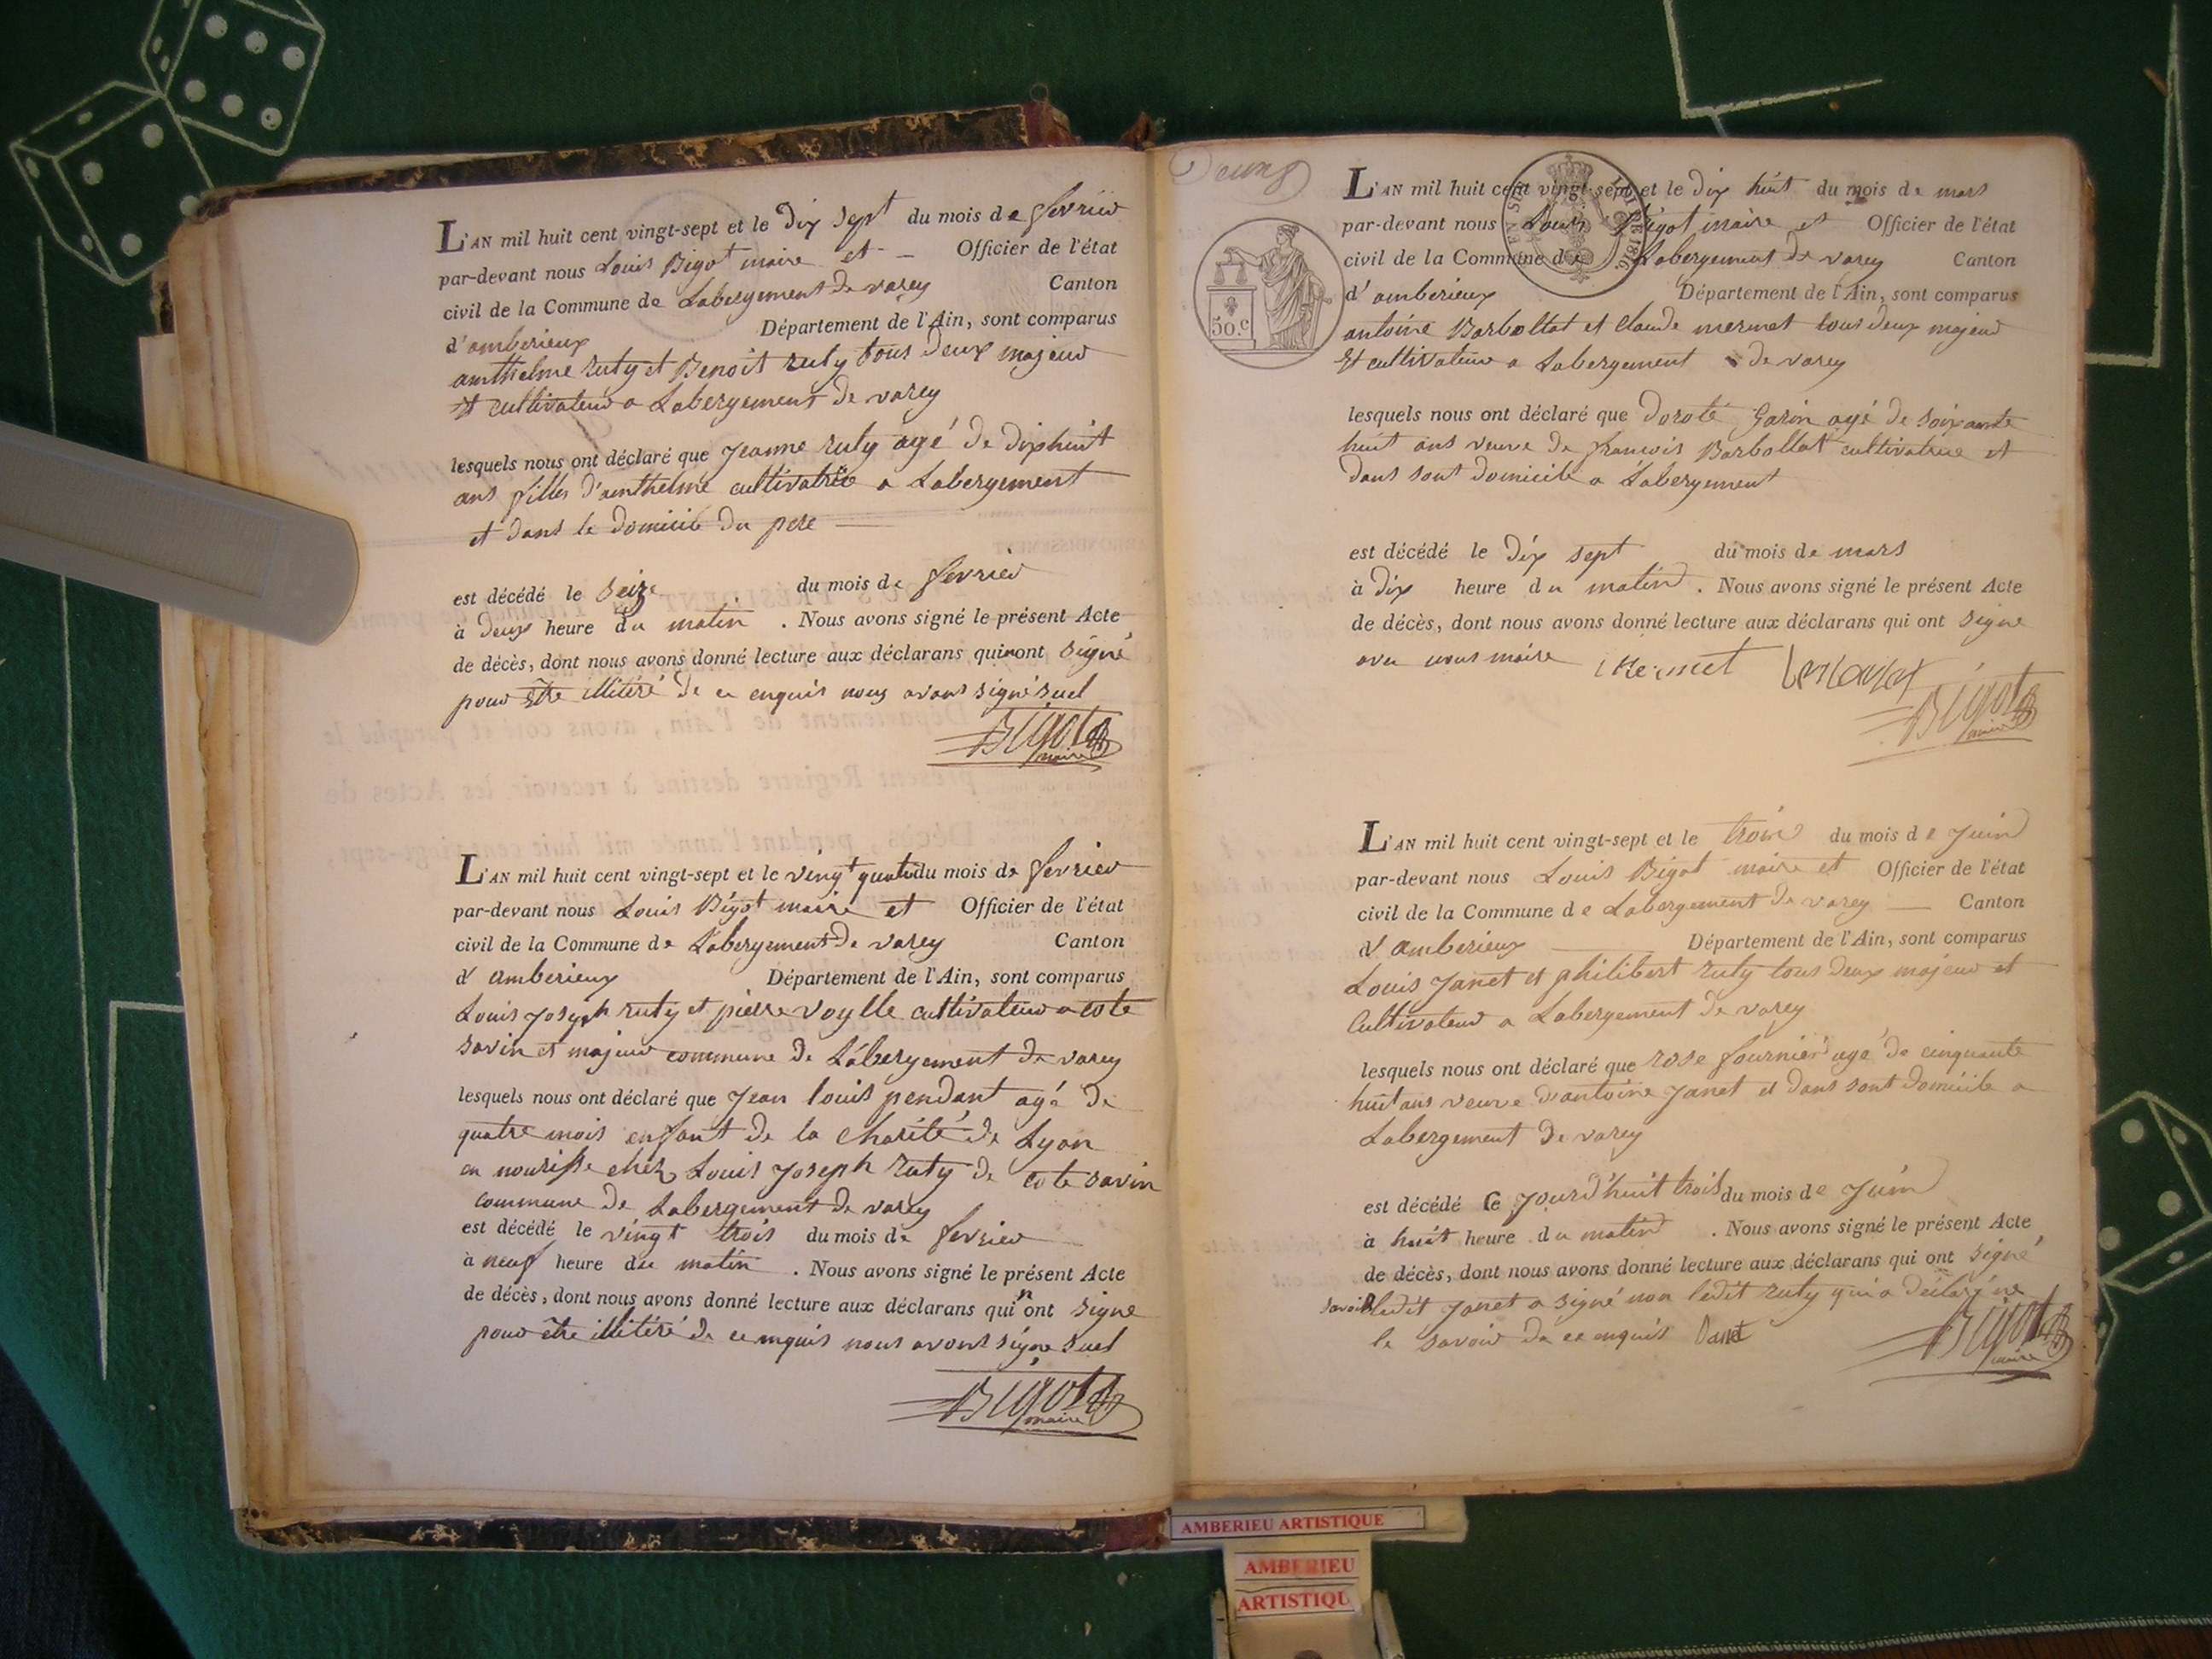 L'AN mil huit cent vingt-sept et le dix sept du mois de fevrier
par-devant nous Louis Bigot maire et - Officier de l'état
civil de la Commune de Labergement de varey Canton
d'amberieux Département de l'Ain, sont comparus
amthelme ruty et Benoit ruty tous deux majeur
et cultivateur a Labergement de varey
lesquels nous ont déclaré que jeanne ruty agé de dixhuit
ans filles d'amthelme cultivatrice a Labergement
et dans le domicile du pere
est décédé le Seize du mois de fevrier
à deux heure du matin . Nous avons signé le présent Acte
de décès, dont nous avons donné lecture aux déclarans qui n ont signé
pour être illitéré de ce enquis nous avons signé suel
Bigot
maire
L'AN mil huit cent vingt-sept et le vingt quatre du mois de fevrier
par-devant nous Louis Bigot maire et Officier de l'état
civil de la Commune de Labergement de varey Canton
d'amberieux Département de l'Ain, sont comparus
Louis joseph ruty et pierre voylle cultivateur a cote
savin et majeur commune de Labergement de varey
lesquels nous ont déclaré que jean louis pendant agé de
quatre mois enfant de la charité de Lyon
en nourisse chez Louis joseph ruty de cote savin
commune de Labergement de varey
est décédé le vingt trois du mois de fevrier
à neuf heure du matin . Nous avons signé le présent Acte
de décès, dont nous avons donné lecture aux déclarans qui n ont signe
pour être illitéré de ce enquis nous avons signe suel
Bigot
maire
Deux
L'AN mil huit cent vingt-sept et le dix huit du mois de mars
par-devant nous Louis Bigot maire et Officier de l'état
civil de la Commune de Labergement de varey Canton
d'amberieux Département de l'Ain, sont comparus
50.c
antoine Barbollat et claude mermet tous deux majeur
et cultivateur a Labergement de varey
lesquels nous ont déclaré que doroté Garin agé de soixante
huit ans veuve de francois Barbollat cultivatrice et
dans sont domicile a Labergement
est décédé le dix sept du mois de mars
à dix heure du matin . Nous avons signé le présent Acte
de décès, dont nous avons donné lecture aux déclarans qui ont signe
avec nous maire Mermet
Bigot
maire
L'AN mil huit cent vingt-sept et le trois du mois de juin
par-devant nous Louis Bigot maire et Officier de l'état
civil de la Commune de Labergement de varey Canton
d'amberieux Département de l'Ain, sont comparus
Louis janet et philibert ruty tous deux majeur et
cultivateur a Labergement de varey
lesquels nous ont déclaré que rose fournier agé de cinquante
huit ans veuve d'antoine janet et dans sont domicile a
Labergement de varey
est décédé Ce jourd'huit trois du mois de juin
à huit heure du matin . Nous avons signé le présent Acte
de décès, dont nous avons donné lecture aux déclarans qui ont signé
savoir ledit janet a signé non ledit ruty qui a déclaré ne
le savoir de ce enquis Janet
Bigot
maire
AMBERIEU ARTISTIQUE
AMBERIEU
ARTISTIQU